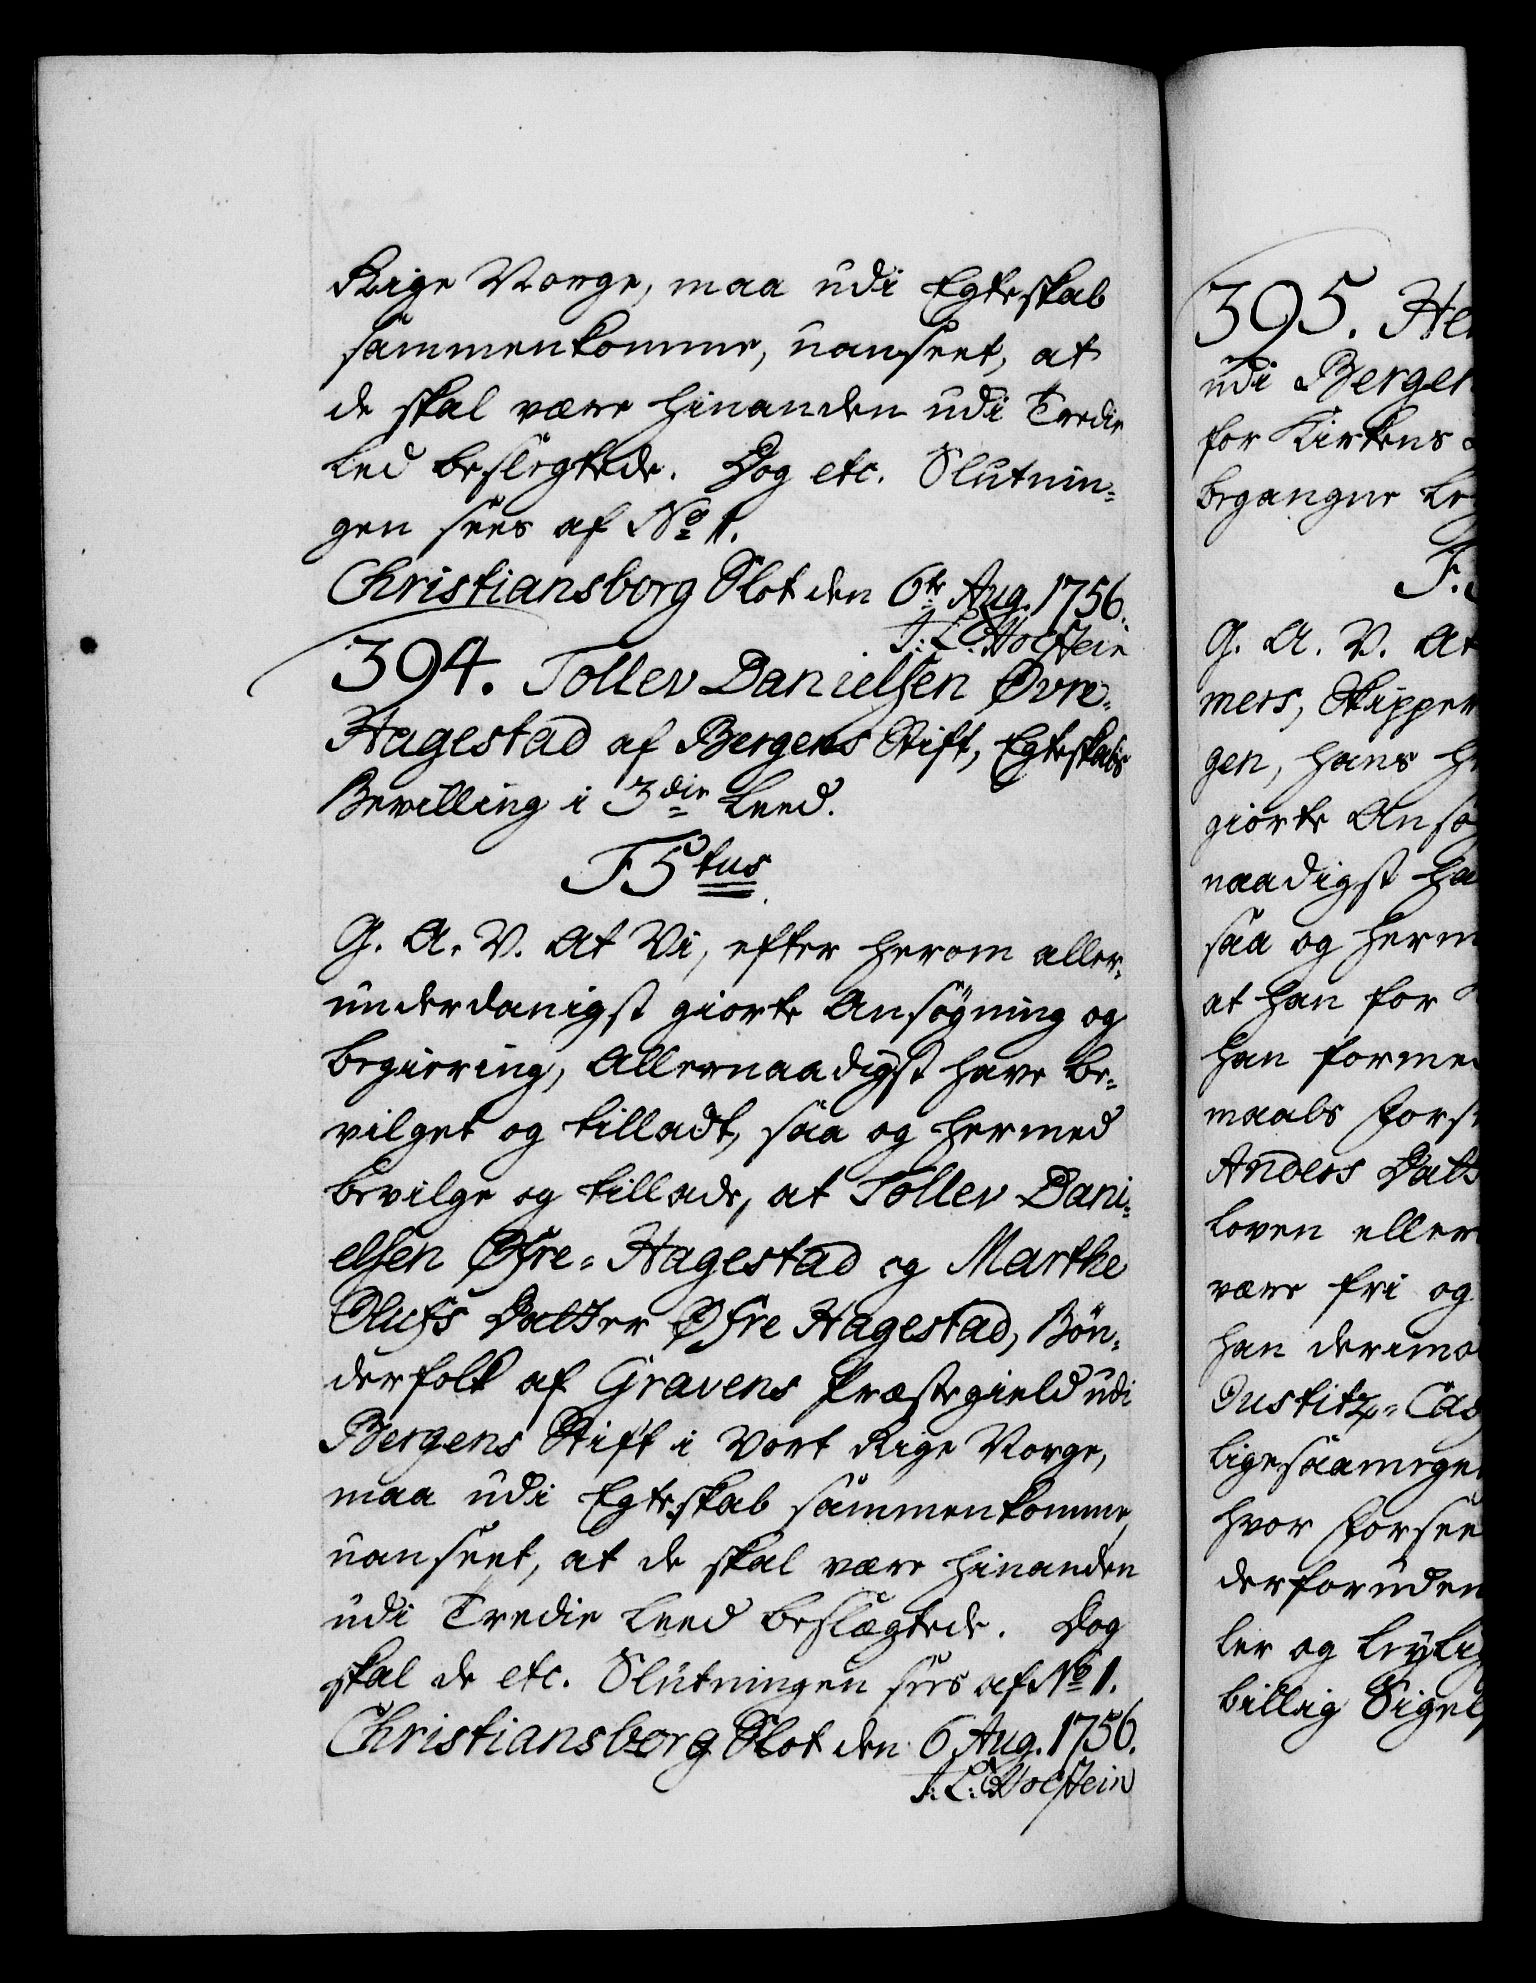 Rige Norge, maa udi Egteskab
sammenkomme, uanseet, at
de skal være hinanden udi Tredie
Led beslegtede. Dog etc. Slutnin-
gen sees af No 1.
Christiansborg Slot den 6te Aug. 1756.
J. L. Holstein
394. Tollev Danielsen Øvre-
Hagestad af Bergens Stift, Egteskabs
Bevilling i 3die Leed.
F5tus
G. A. V. At Vi, efter herom aller-
underdanigst giorte Ansøgning og
begiering, Allernaadigst have be-
vilget og tilladt, saa og hermed
bevilge og tillade, at Tollev Dani-
elsen Øfre-Hagestad og Marthe
Olufs Datter Øfre Hagestad, Bøn-
derfolk af Gravens Præstegield udi
Bergens Stift i Vort Rige Norge,
maa udi Egteskab sammenkomme,
uanseet, at de skal være hinanden
udi Tredie Leed beslægtede. Dog
skal de etc. Slutningen sees af No 1.
Christiansborg Slot den 6 Aug. 1756.
J. L. Holstein
395. He
udi Bergen
for Kirkens
begangne Le
F.
G. A. V. At
mers, Skipper
gen, hans
giorte Ansøg
naadigst ha
saa og herm
at han for
han forme
maals Forse
Anders Datt
Loven eller
være fri og
han derimo
Justitz-Cas
ligesaameget
hvor Forsee
derforuden
ler og Leylig
billig Sigel